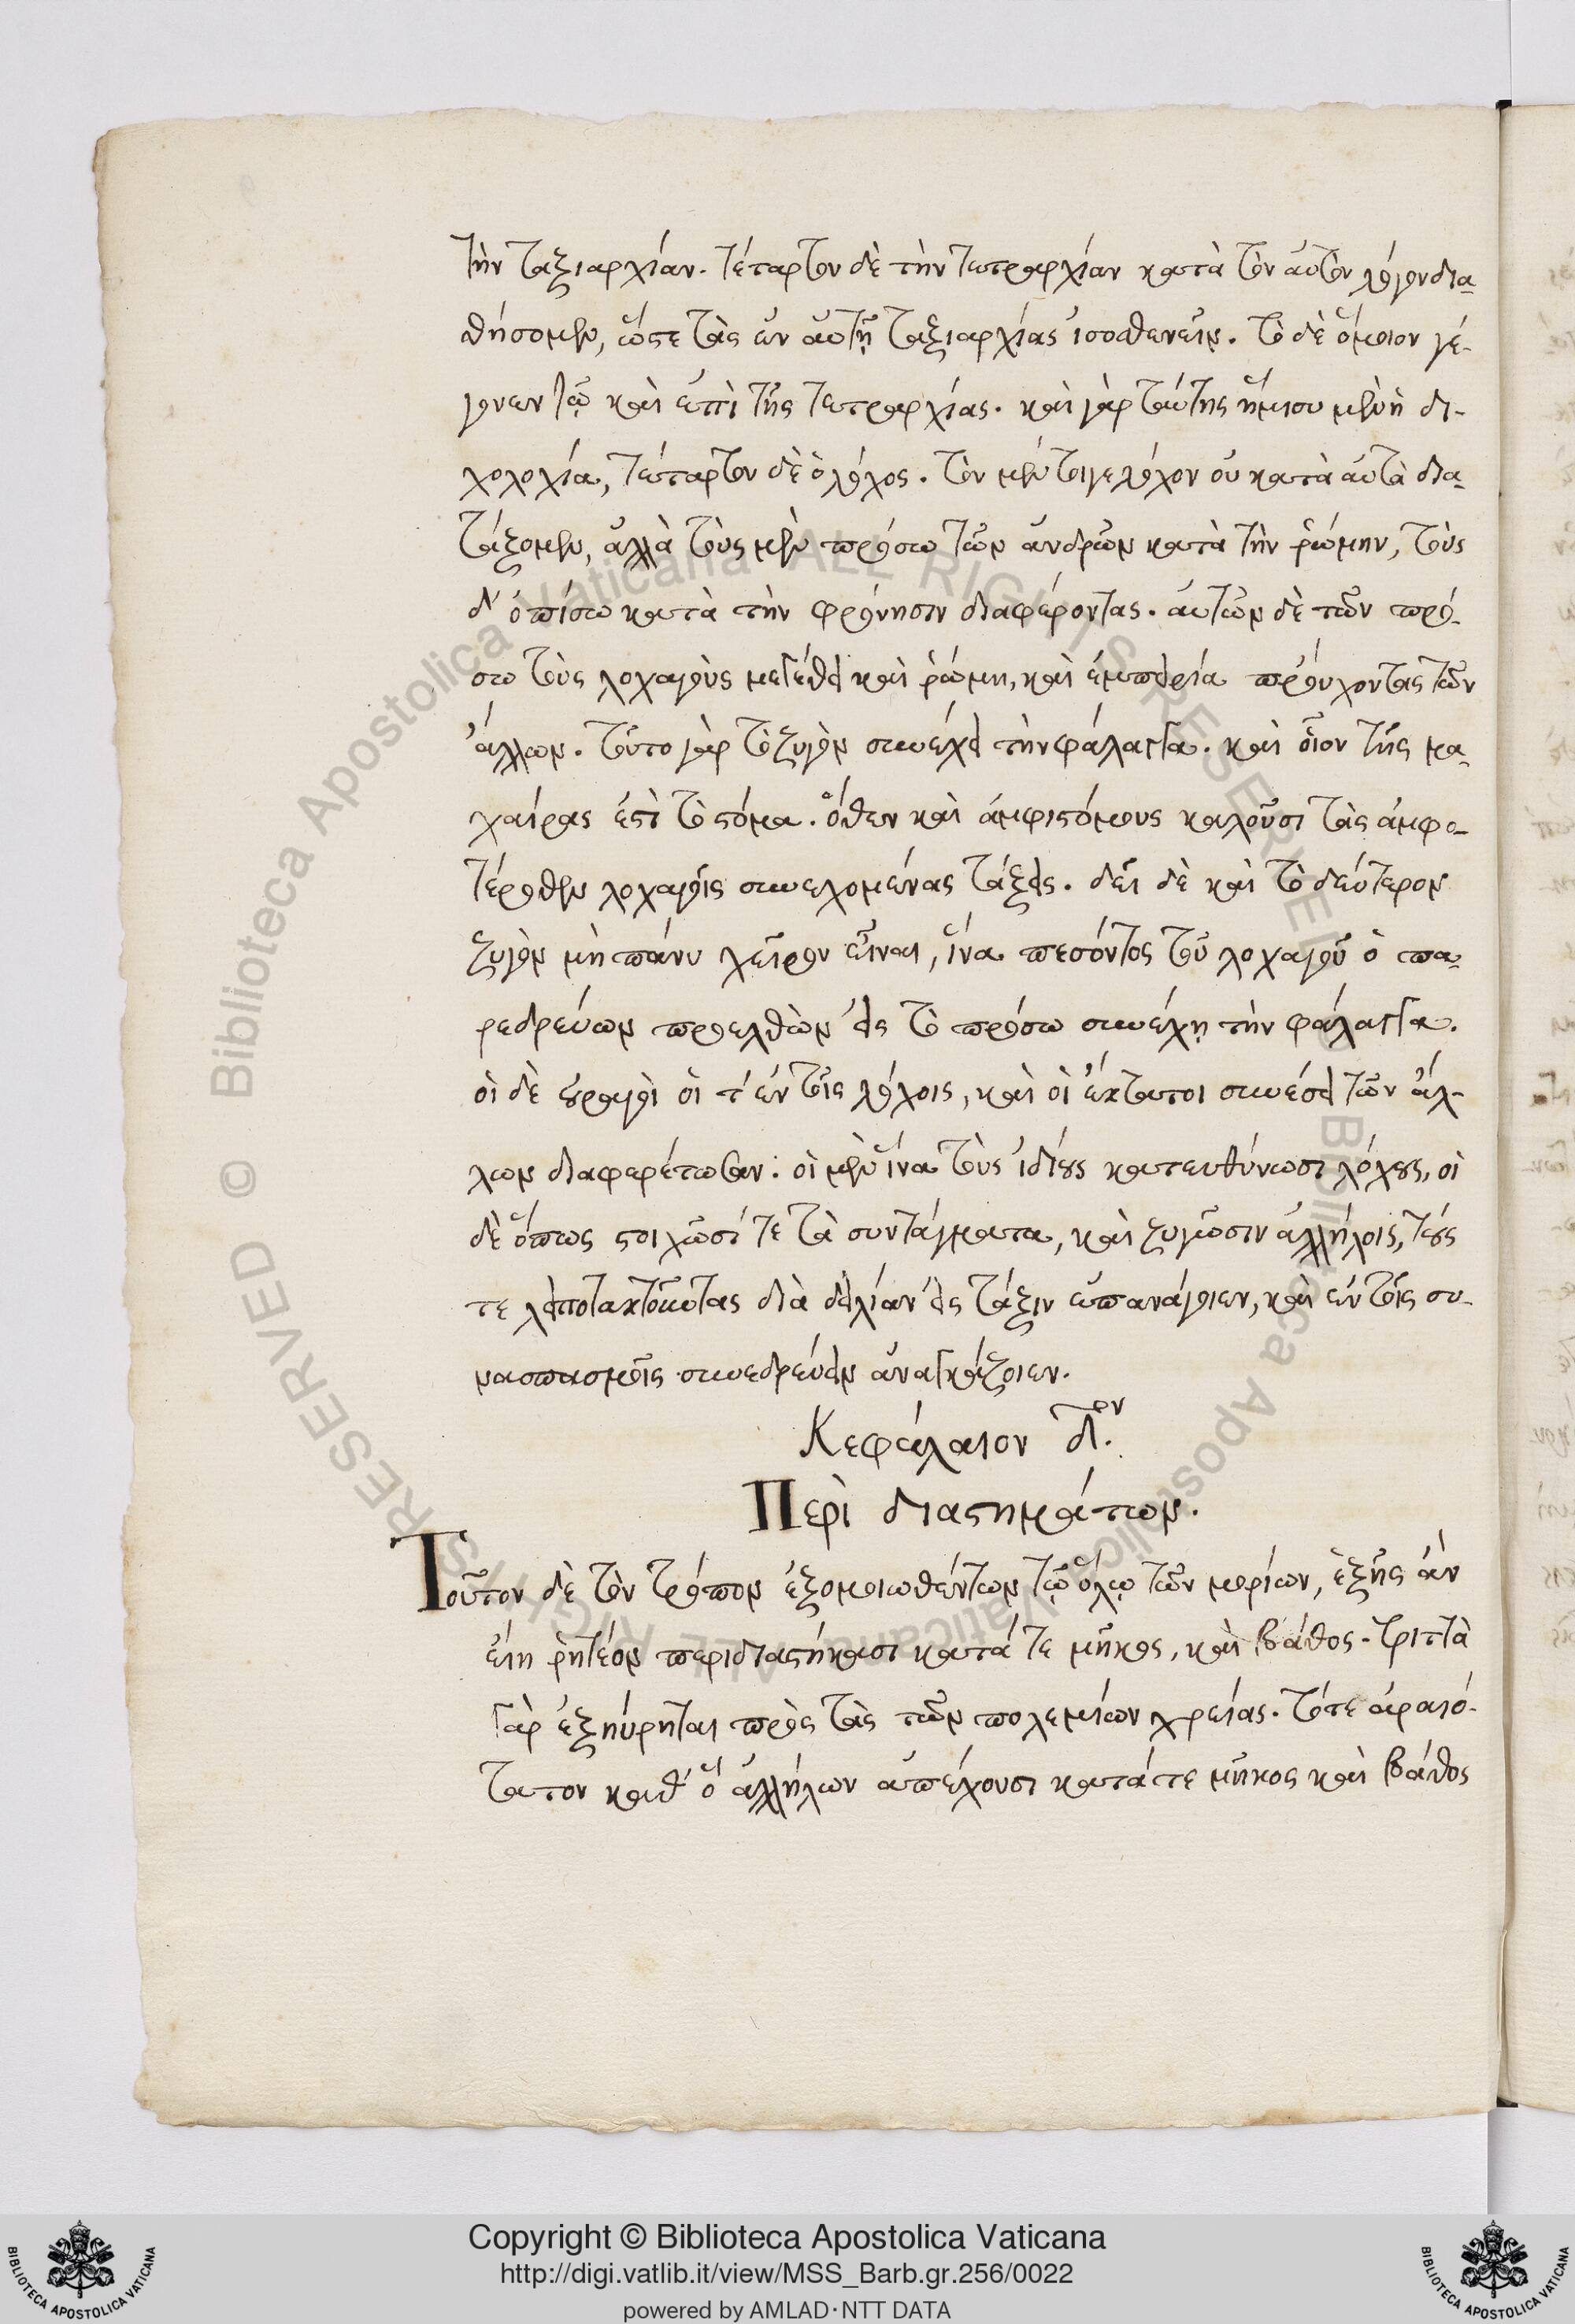 τὴν ταξιαρχίαν. τέταρτον δὲ τὴν τετραρχίαν κατὰ τὸν αὐτὸν λόγον δια-
θήσομεν, ὥστε τὰς ἐν αὐτῇ ταξιαρχίας ἰσοσθενεῖν. τὸ δὲ ὅμοιον γέ-
γονεν τῷ καὶ ἐπὶ τῆς τετραρχίας. καὶ γὰρ ταύτης ἥμισυ μὲν ἡ δι-
χολοχία, τέταρτον δὲ ὁ λόχος. τὸν μέν τοιγε λόχον οὐ κατὰ αὐτὰ δια-
τάξομεν, ἀλλὰ τοὺς μὲν πρόσω τῶν ἀνδρῶν κατὰ τὴν ῥώμην, τοὺς
δ' ὀπίσω κατὰ τὴν φρόνησιν διαφέροντας. αὐτῶν δὲ τῶν πρό-
σω τοὺς λοχαγοὺς μεγέθει καὶ ῥώμῃ, καὶ ἐμπειρία προύχοντας τῶν
ἄλλων. τοῦτο γὰρ τὸ ζυγὸν συνέχει τὴν φάλαγγα. καὶ οἷον τῆς μα-
χαίρας ἐστὶ τὸ στόμα. ὅθεν καὶ ἀμφιστόμους καλοῦσι τὰς ἀμφο-
τέροθεν λοχαγοῖς συνεχομένας τάξεις. δεῖ δὲ καὶ τὸ δεύτερον
ζυγὸν μὴ πάνυ χεῖρον εἶναι, ἵνα πεσόντος τοῦ λοχαγοῦ ὁ πα-
ρεδρεύων προελθὼν εἰς τὸ πρόσω συνέχῃ τὴν φάλαγγα.
οἱ δὲ οὐραγοὶ οἵ τ' ἐν τοῖς λόχοις, καὶ οἱ ἔκτατοι συνέσει τῶν ἄλ-
λων διαφερέτωσαν: οἱ μὲν ἵνα τοὺς ἰδίους κατευθύνωσι λόχους, οἱ
δὲ ὅπως στοιχῶσί τε τὰ συντάγματα, καὶ ζυγῶσιν ἀλλήλοις, τούς
τε λειποτακτοῦντας διὰ δειλίαν εἰς τάξιν ἐπανάγοιεν, καὶ ἐν τοῖς συ-
νασπισμοῖς συνεδρεύειν ἀναγκάζοιεν.
Κεφάλαιον δ.ον
Περὶ διαστημάτων.
Τοῦτον δὲ τὸν τρόπον ἐξομοιωθέντων τῷ ὅλῳ τῶν μορίων, ἑξῆς ἂν
εἴη ῥητέον περὶ διαστήμασι κατά τε μῆκος, καὶ βάθος. τριττὰ
γὰρ ἐξηύρηται πρὸς τὰς τῶν πολεμίων χρείας. τό τε ἀραιό-
τατον καθ' ὃ ἀλλήλων ἀπέχουσι κατά τε μῆκος καὶ βάθος
Copyright © Biblioteca Apostolica Vaticana
http://digi.vatlib.it/view/MSS_Barb.gr.256/0022
powered by AMLAD·NTT DATA